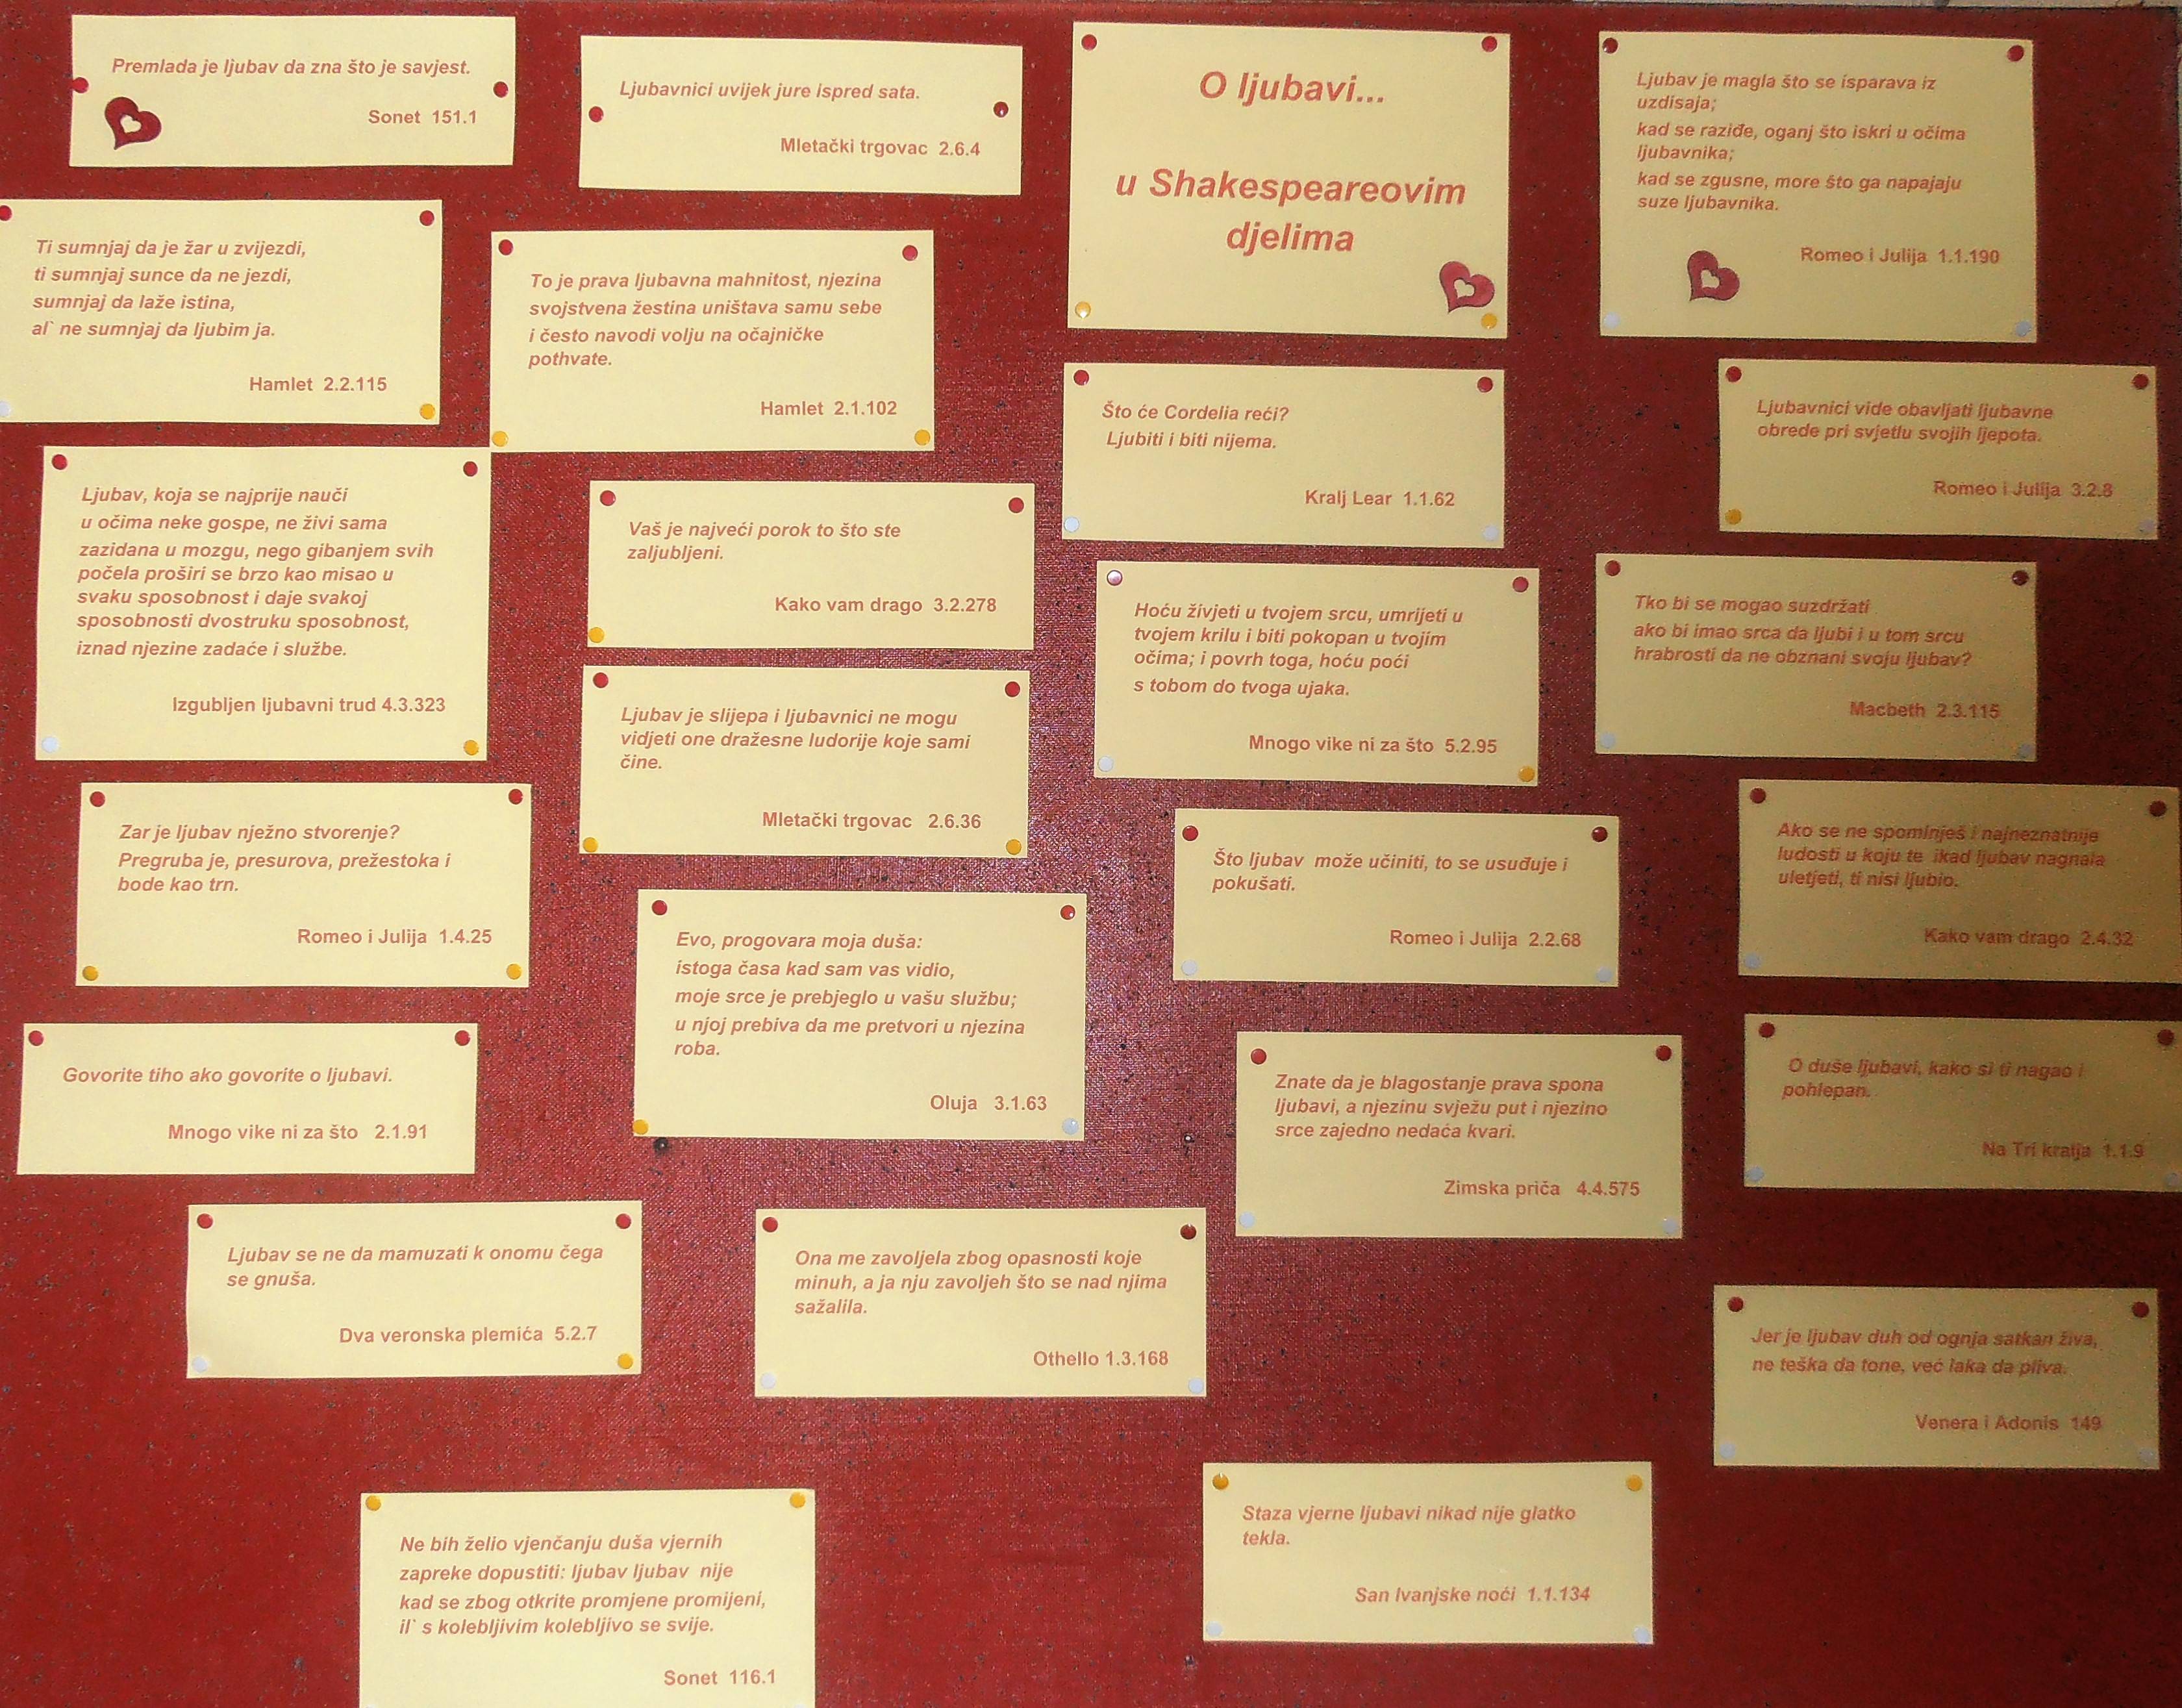 Premlada je ljubav da zna što je savjest.
Sonet 151.1
Ljubavnici uvijek jure ispred sata.
Mletački trgovac 2.6.4
O ljubavi...
u Shakespeareovim
djelima
Ljubav je magla što se isparava iz
uzdisaja;
kad se raziđe, oganj što iskri u očima
ljubavnika;
kad se zgusne, more što ga napajaju
suze ljubavnika.
Romeo i Julija 1.1.190
Ti sumnjaj da je žar u zvijezdi,
ti sumnjaj sunce da ne jezdi,
sumnjaj da laže istina,
al` ne sumnjaj da ljubim ja.
Hamlet 2.2.115
To je prava ljubavna mahnitost, njezina
svojstvena žestina uništava samu sebe
i često navodi volju na očajničke
pothvate.
Hamlet 2.1.102
Što će Cordelia reći?
Ljubiti i biti nijema.
Kralj Lear 1.1.62
Ljubavnici vide obavljati ljubavne
obrede pri svjetlu svojih ljepota.
Romeo i Julija 3.2.8
Ljubav, koja se najprije nauči
u očima neke gospe, ne živi sama
zazidana u mozgu, nego gibanjem svih
počela proširi se brzo kao misao u
svaku sposobnost i daje svakoj
sposobnosti dvostruku sposobnost,
iznad njezine zadaće i službe.
Izgubljen ljubavni trud 4.3.323
Vaš je najveći porok to što ste
zaljubljeni.
Kako vam drago 3.2.278
Hoću živjeti u tvojem srcu, umrijeti u
tvojem krilu i biti pokopan u tvojim
očima; i povrh toga, hoću poći
s tobom do tvoga ujaka.
Mnogo vike ni za što 5.2.95
Tko bi se mogao suzdržati
ako bi imao srca da ljubi i u tom srcu
hrabrosti da ne obznani svoju ljubav?
Macbeth 2.3.115
Ljubav je slijepa i ljubavnici ne mogu
vidjeti one dražesne ludorije koje sami
čine.
Mletački trgovac 2.6.36
Zar je ljubav nježno stvorenje?
Pregruba je, presurova, prežestoka i
bode kao trn.
Romeo i Julija 1.4.25
Što ljubav može učiniti, to se usuđuje i
pokušati.
Romeo i Julija 2.2.68
Ako se ne spominješ i najneznatnije
ludosti u koju te ikad ljubav nagnala
uletjeti, ti nisi ljubio.
Kako vam drago 2.4.32
Evo, progovara moja duša:
istoga časa kad sam vas vidio,
moje srce je prebjeglo u vašu službu;
u njoj prebiva da me pretvori u njezina
roba.
Oluja 3.1.63
Govorite tiho ako govorite o ljubavi.
Mnogo vike ni za što 2.1.91
Znate da je blagostanje prava spona
ljubavi, a njezinu svježu put i njezino
srce zajedno nedaća kvari.
Zimska priča 4.4.575
O duše ljubavi, kako si ti nagao i
pohlepan.
Na Tri kralja 1.1.9
Ljubav se ne da mamuzati k onomu čega
se gnuša.
Dva veronska plemića 5.2.7
Ona me zavoljela zbog opasnosti koje
minuh, a ja nju zavoljeh što se nad njima
sažalila.
Othello 1.3.168
Jer je ljubav duh od ognja satkan živa,
ne teška da tone, već laka da pliva.
Venera i Adonis 149
Staza vjerne ljubavi nikad nije glatko
tekla.
San Ivanjske noći 1.1.134
Ne bih želio vjenčanju duša vjernih
zapreke dopustiti: ljubav ljubav nije
kad se zbog otkrite promjene promijeni,
il` s kolebljivim kolebljivo se svije.
Sonet 116.1